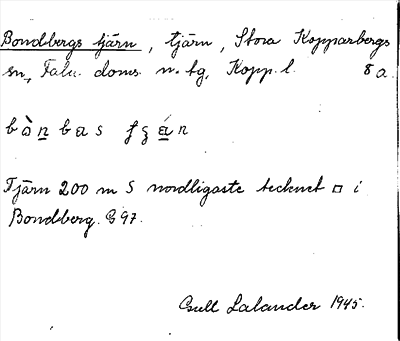 Bondbergs tjärn, tjärn, Stora Kopparbergs
sn, Falu doms. n. tg, Kopp. l. 8 a.
Tjärn 200 m S nordligaste tecknet □ i
Bondberg. G 97.
Gull Lalander 1945.